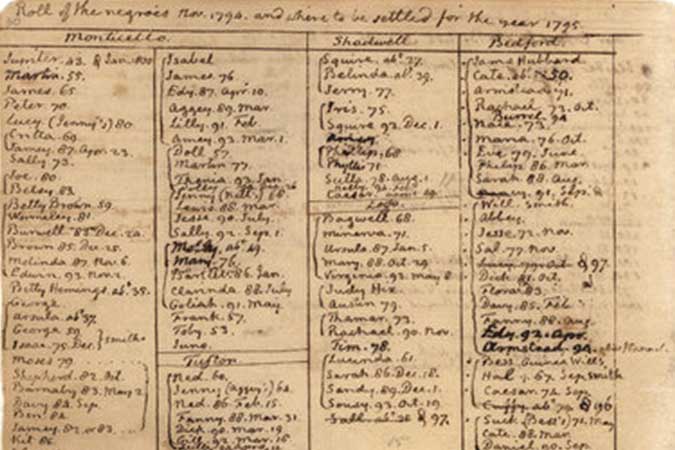 Roll of the negroes Nov. 1794. and where to be settled for the year 1795.
Monticello.
Jupiter. 43. & Jan. 800
Martin. 55.
James. 65
Peter. 70.
Lucy (Jenny's) 80
Critta. 69
Jamey. 87. Apr. 23.
Sally 73.
Joe. 80
Betsy. 83
Betty Brown. 59.
Wormeley. 81.
Burwell 83. Dec. 24.
Brown. 85. Dec. 25.
Melinda 87. Nov. 6.
Edwin. 93. Nov. 2.
Betty Hemings. abt. 35.
George
Ursula. abt. 37.
George. 59
Isaac. 75. Dec. } smiths
Moses 79
Shepherd. 82. Oct.
Barnaby 83. May 2
Davy 84. Sep.
Ben. 84
Jamey. 82. or 83.
Kit 86
Isabel
James. 76
Edy. 87. Apr. 10.
Aggey. 89. Mar.
Lilly. 91. Feb.
Amey. 93. Mar. 1.
Doll. 57
Martin 77.
Thenia. 93. Jan
Jenny (Nell's) 68
Lewis. 88. Mar.
Jesse. 90. July.
Sally. 92. Sep. 1.
Molly. abt. 49.
Mary. 76.
Bartlet. 86. Jan.
Clarinda. 88. July
Goliah. 91. May
Frank. 57.
Toby. 53.
Juno.
Tufton
Ned. 60
Jenny (Aggy's) 64.
Ned. 86. Feb. 15.
Fanny. 88. Mar. 31.
Dick. 90. Mar. 19
Gill. 92. Mar. 16
Shadwell
Squire. abt. 27.
Belinda. abt. 39.
Jerry. 77.
Iris. 75.
Squire 93. Dec. 1.
Phillip. 68
Phyllis 71
Sulla 78. Aug. 1
Caesar
Lego.
Bagwell. 68.
Minerva. 71.
Ursula. 87. Jan. 5.
Mary. 88. Oct. 29
Virginia. 93. May 8
Judy Hix.
Austin 79.
Thamar. 73.
Rachael. 90. Nov.
Tim. 78.
Lucinda. 61.
Sarah. 86. Dec. 18.
Sandy. 89. Dec. 1.
Sousy. 93. Oct. 19
& 97.
Bedford.
Jame Hubbard
Cate. ab. 50.
Armstead. 71.
Rachael. 73. Oct.
Burrel. 94
Nace. 73.
Maria. 76. Oct.
Eve. 79. June
Philip. 86. Mar.
Sarah. 88. Aug.
Will. Smith.
Abbey.
Jesse. 72. Nov.
Sal. 77. Nov.
& 97.
Dick. 81. Oct.
Flora. 83.
Davy. 85. Feb
Fanny. 88. Aug.
Edy. 92. Apr.
Armstead. 94.
Bess. Guinea Will's
Hal. 67. Sep. smith
Caesar. 74. Sep.
Cuffy
Suck (Bess's) 71. May
Cate. 88. Mar.
Daniel. 90. Sep.